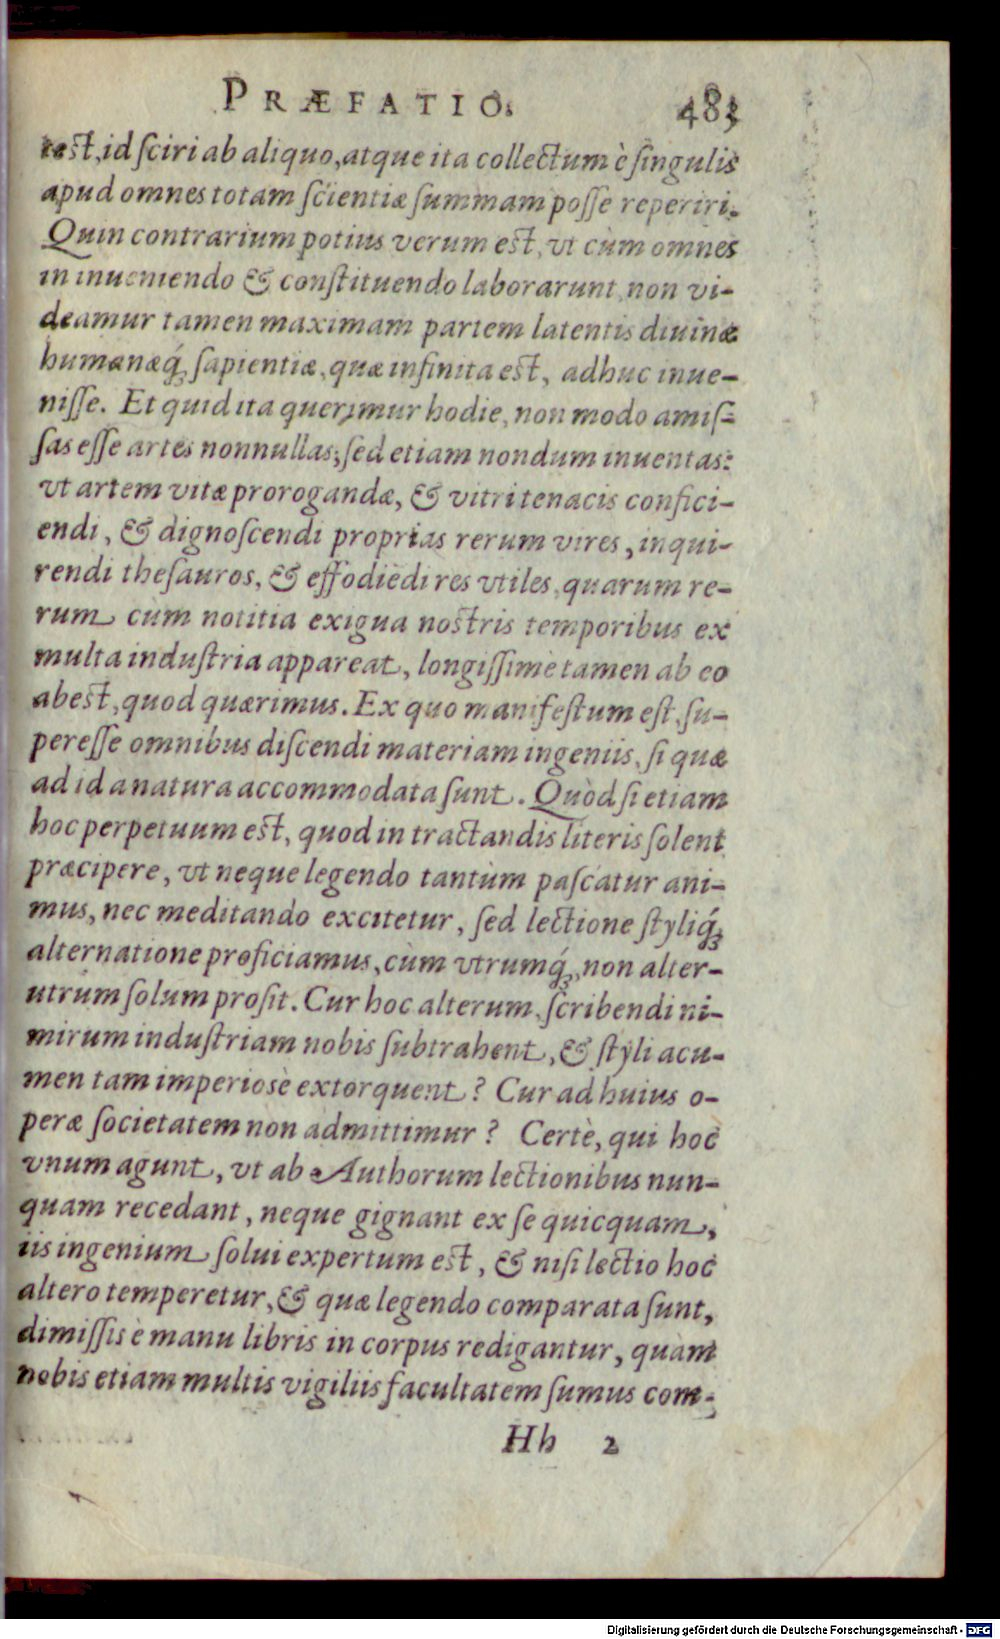 PRÆFATIO. 483
test, id sciri ab aliquo, atque ita collectum è singulis
apud omnes totam scientiæ summam posse reperiri.
Quin contrarium potius verum est, vt cùm omnes
in inueniendo & constituendo laborarunt, non vi-
deamur tamen maximam partem latentis diuinæ
humanæq́; sapientiæ, quæ infinita est, adhuc inue-
nisse. Et quid ita querimur hodie, non modo amis-
sas esse artes nonnullas, sed etiam nondum inuentas:
vt artem vitæ prorogandæ, & vitri tenacis confici-
endi, & dignoscendi proprias rerum vires, inqui-
rendi thesauros, & effodiēdi res vtiles, quarum re-
rum cùm notitia exigua nostris temporibus ex
multa industria appareat, longissimè tamen ab eo
abest, quod quærimus. Ex quo manifestum est, su-
peresse omnibus discendi materiam ingeniis, si quæ
ad id a natura accommodata sunt. Quòd si etiam
hoc perpetuum est, quod in tractandis literis solent
præcipere, vt neque legendo tantùm pascatur ani-
mus, nec meditando excitetur, sed lectione styliq́;
alternatione proficiamus, cùm vtrumq́;, non alter-
utrum solum prosit. Cur hoc alterum, scribendi ni-
mirum industriam nobis subtrahent, & styli acu-
men tam imperiosè extorquent? Cur ad huius o-
peræ societatem non admittimur? Certè, qui hoc
vnum agunt, vt ab Authorum lectionibus nun-
quam recedant, neque gignant ex se quicquam,
iis ingenium solui expertum est, & nisi lectio hoc
altero temperetur, & quæ legendo comparata sunt,
dimissis è manu libris in corpus redigantur, quàm
nobis etiam multis vigiliis facultatem sumus com-
Hh 2
Digitalisierung gefördert durch die Deutsche Forschungsgemeinschaft - DFG